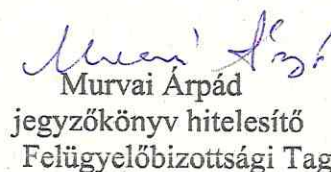 Murvai Árpád
jegyzőkönyv hitelesítő
Felügyelőbizottsági Tag